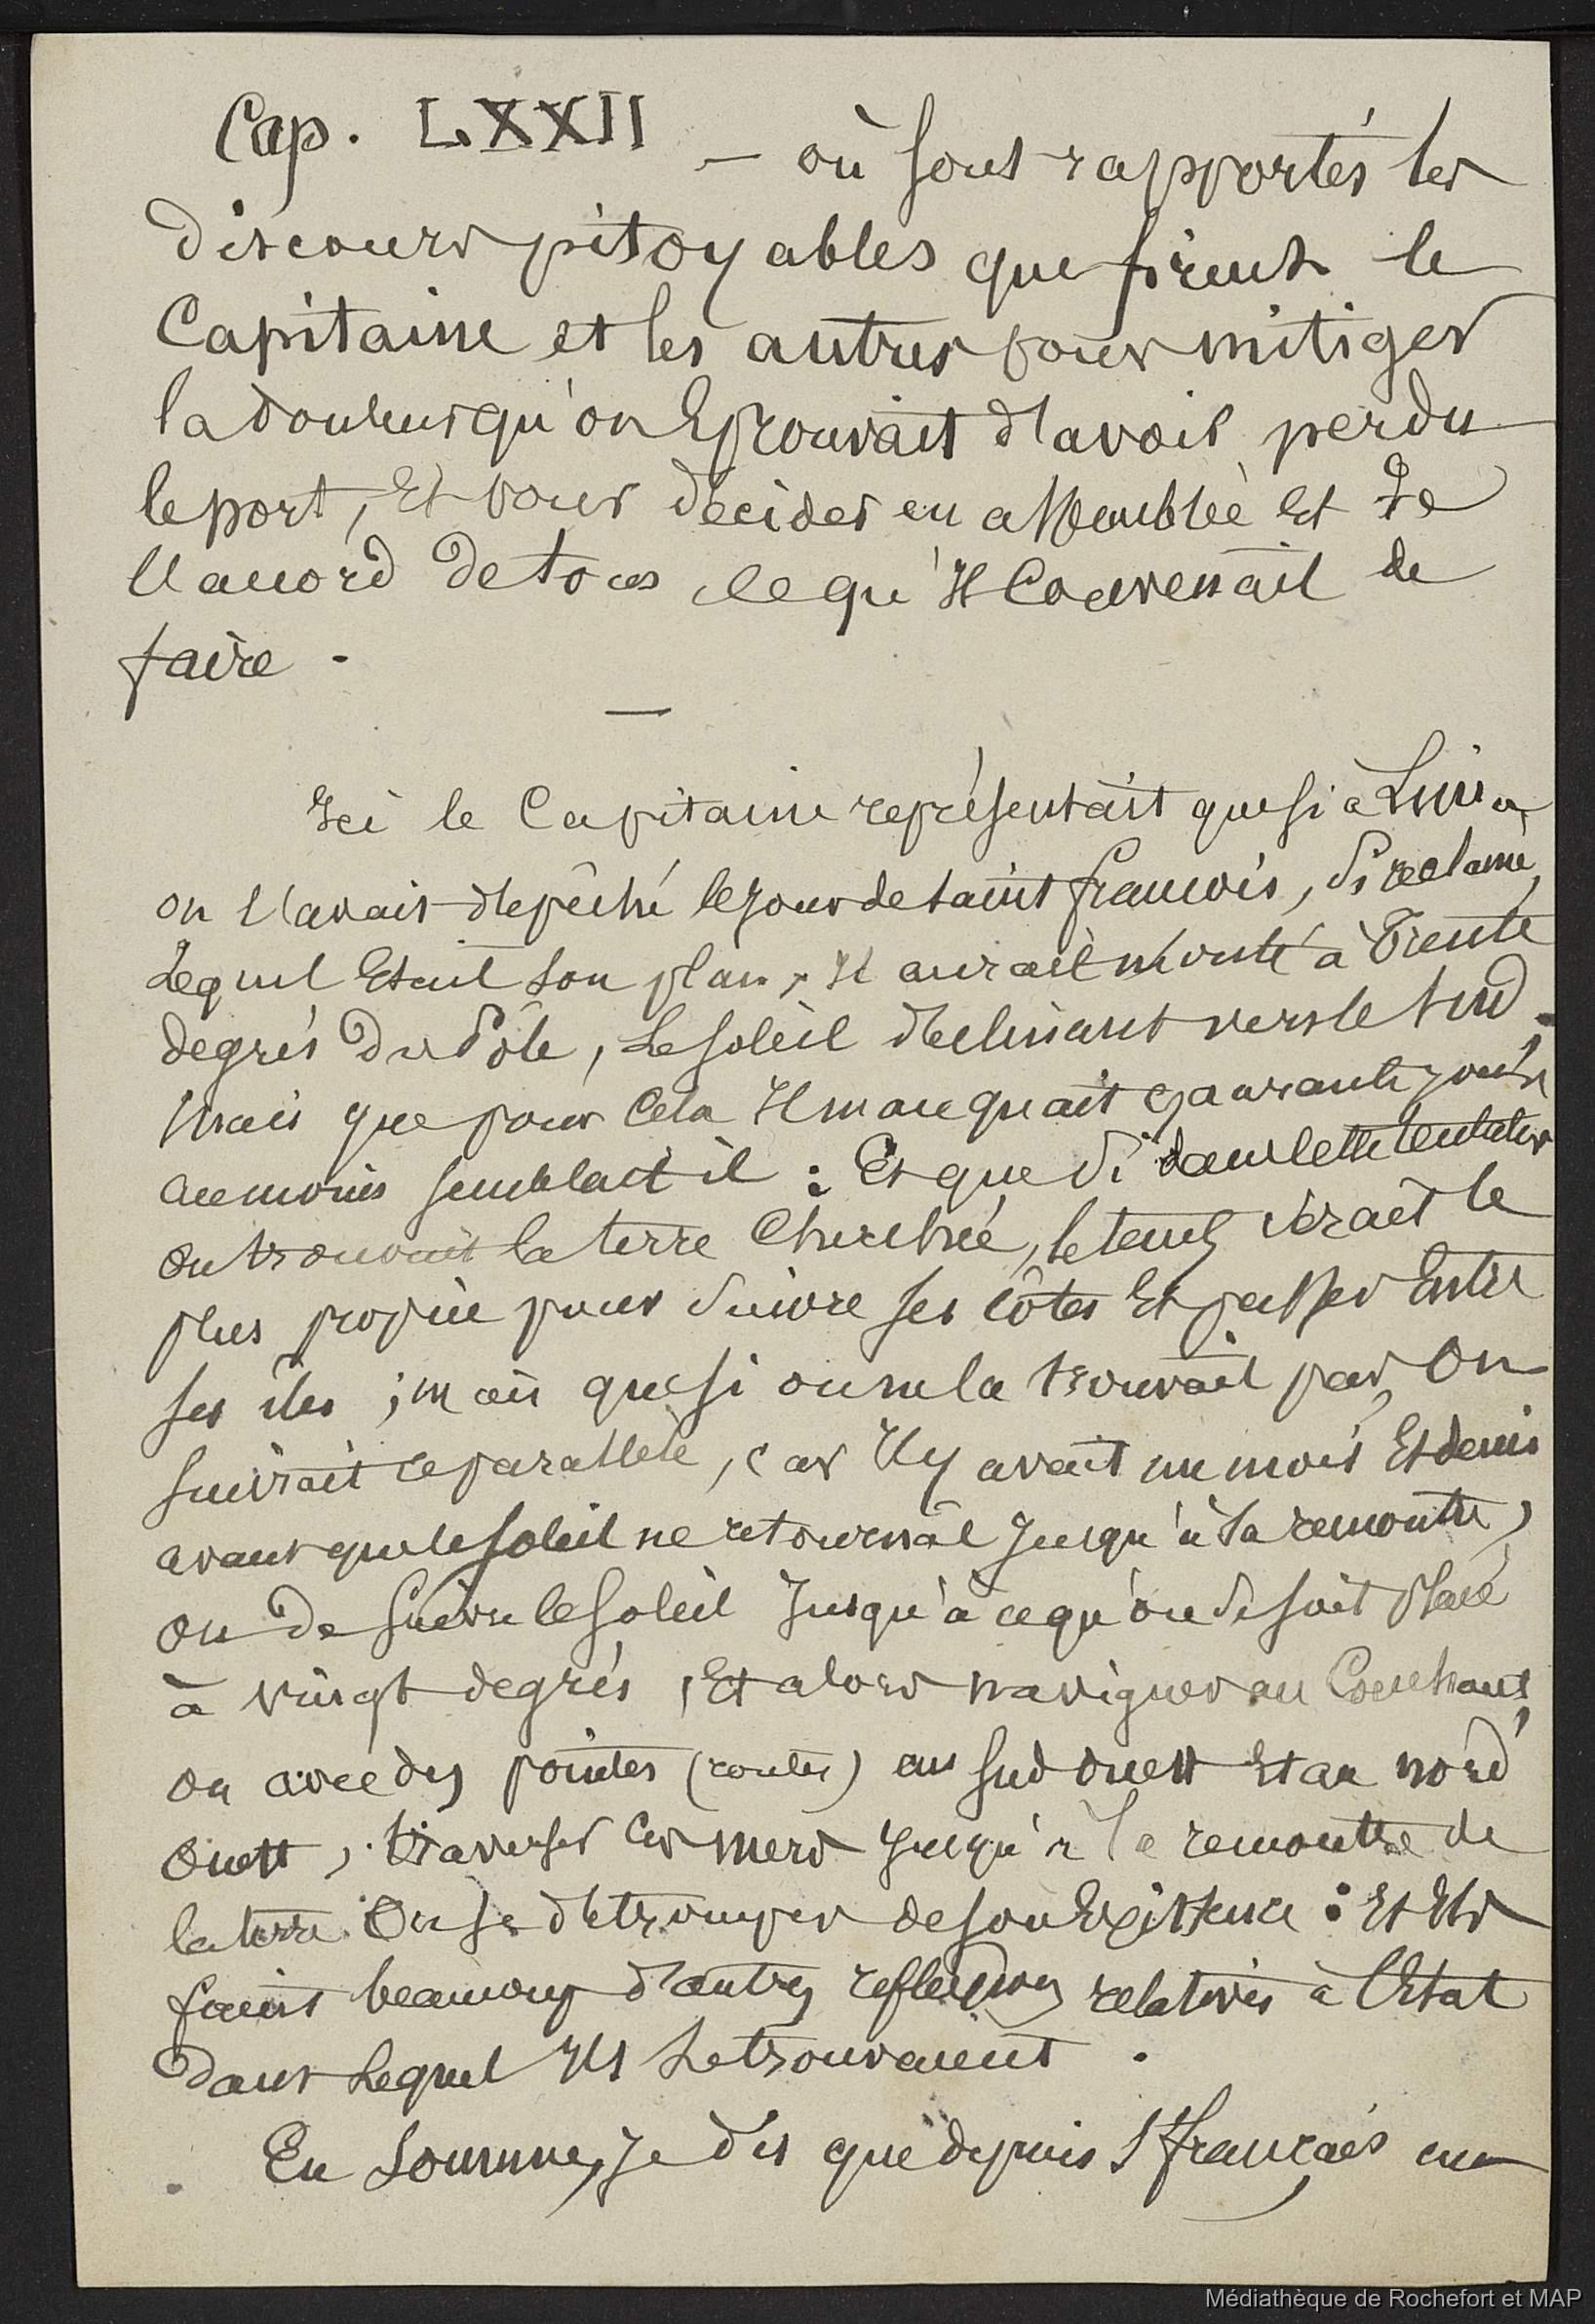 Cap. LXXII – où sont rapportés les
discours pitoyables que firent le
Capitaine et les autres pour mitiger
la douleur qu'on Eprouvait d'avoir perdu
le port, Et pour décider en assemblée Et de
l'accord de tous ce qu'Il Convenait de
faire .
—
Ici le Capitaine représentait que si à Lima
on l'avait dépêché le jour de saint françois, si reclamé,
Lequel Etait son plan, Il aurait monté à Trente
degrés du Pôle, Le soleil déclinant vers le sud.
Mais que pour Cela Il manquait quarante jours
au moins semblait il : Et que si dans cette tentative
on trouvait la terre Cherchée, le tems serait le
plus propice pour suivre ses côtes Et passer Entre
ses îles ; mais que si on ne la trouvait pas, On
suivrait ce parallèle, car Il y avait un mois Et demi
avant que le soleil ne retournât Jusqu'à sa remontée,
ou de suivre le soleil Jusqu'à ce qu'on se soit placé
à vingt degrés, Et alors naviguer au Couchant,
ou avec des pointes (routes) au sud ouest Et au nord
ouest, traverser Ces mers Jusqu'à la rencontre de
la terre Ou se détromper de son Existence : Et Ils
faits beaucoup d'autres reflexions relatives à l'Etat
dans Lequel Ils Se trouvaient .
En Somme, Je dis que depuis St français en
Médiathèque de Rochefort et MAP